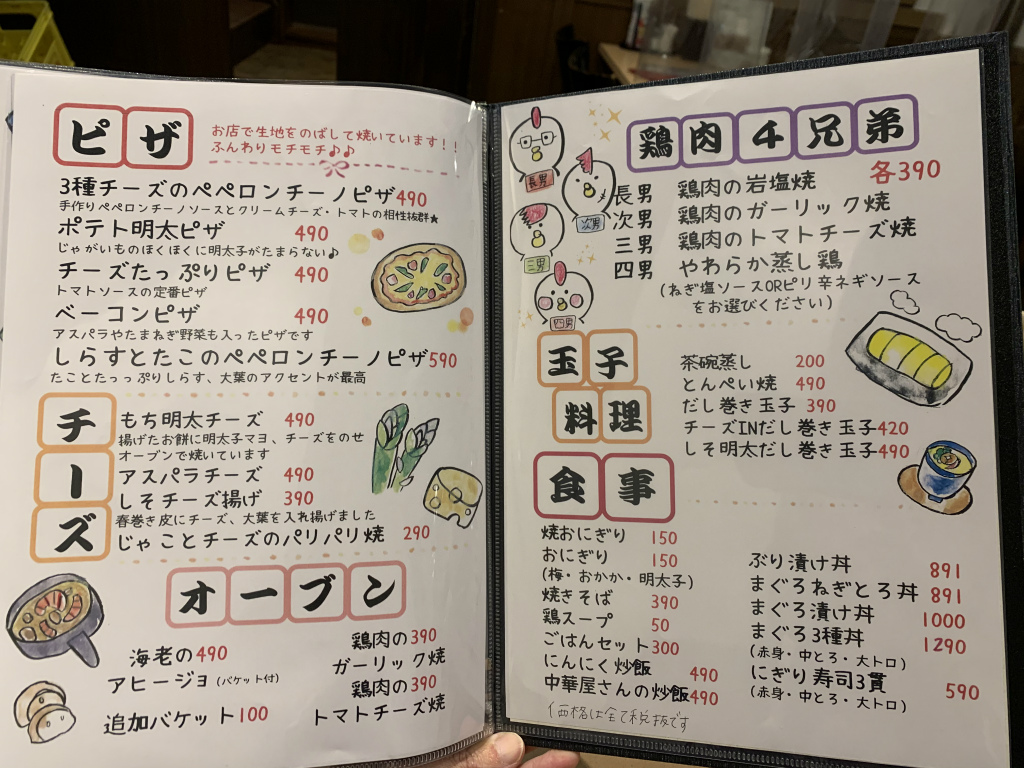 ピザ
お店で生地をのばして焼いています！！
ふんわりモチモチ♪♪
3種チーズのペペロンチーノピザ490
手作りペペロンチーノソースとクリームチーズ・トマトの相性抜群★
ポテト明太ピザ 490
じゃがいものほくほくに明太子がたまらない♪
チーズたっぷりピザ 490
トマトソースの定番ピザ
ベーコンピザ 490
アスパラやたまねぎ野菜も入ったピザです
しらすとたこのペペロンチーノピザ590
たことたっっぷりしらす、大葉のアクセントが最高
チーズ
もち明太チーズ 490
揚げたお餅に明太子マヨ、チーズをのせ
オーブンで焼いています
アスパラチーズ 490
しそチーズ揚げ 390
春巻き皮にチーズ、大葉を入れ揚げました
じゃことチーズのパリパリ焼 290
オーブン
海老の490
アヒージョ(バケット付)
追加バケット100
鶏肉の390
ガーリック焼
鶏肉の390
トマトチーズ焼
鶏肉4兄弟
各390
長男
次男
三男
四男
長男 鶏肉の岩塩焼
次男 鶏肉のガーリック焼
三男 鶏肉のトマトチーズ焼
四男 やわらか蒸し鶏
(ねぎ塩ソースORピリ辛ネギソース
をお選びください)
玉子
料理
茶碗蒸し 200
とんぺい焼 490
だし巻き玉子 390
チーズINだし巻き玉子420
しそ明太だし巻き玉子490
食事
焼おにぎり 150
おにぎり 150
(梅・おかか・明太子)
焼きそば 390
鶏スープ 50
ごはんセット300
にんにく炒飯 490
中華屋さんの炒飯490
価格は全て税抜です
ぶり漬け丼 891
まぐろねぎとろ丼 891
まぐろ漬け丼 1000
まぐろ3種丼 1290
(赤身・中とろ・大トロ)
にぎり寿司3貫 590
(赤身・中とろ・大トロ)